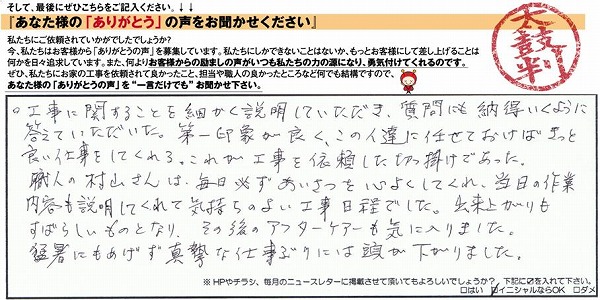 そして、最後にぜひこちらをご記入ください。↓↓
『あなた様の「ありがとう」の声をお聞かせください』
太鼓判
私たちにご依頼されていかがでしたでしょうか?
今、私たちはお客様から「ありがとうの声」を募集しています。私たちにしかできないことはないか、もっとお客様にして差し上げることは
何かを日々追求しています。また、何よりお客様からの励ましの声がいつも私たちの力の源になり、勇気付けてくれるのです。
ぜひ、私たちにお家の工事を依頼されて良かったこと、担当や職人の良かったところなど何でも結構ですので、
あなた様の「ありがとうの声」を"一言だけでも"お聞かせ下さい。
。工事に関することを細かく説明していただき、質問にも納得いくように
答えていただいた。第一印象が良く、この人達に任せておけばきっと
良い仕事をしてくれる。これが工事を依頼した切っ掛けであった。
職人の村山さんは、毎日必ずあいさつを心よくしてくれ、当日の作業
内容も説明してくれて気持ちのよい工事日程でした。出来上がりも
すばらしいものとなり、その後のアフターケアーも気に入りました。
猛暑にもめげず真摯な仕事ぶりには頭が下がりました。
※HPやチラシ、毎月のニュースレターに掲載させて頂いてもよろしいでしょうか? 下記に☑を入れて下さい。
□はい ☑イニシャルならOK □ダメ